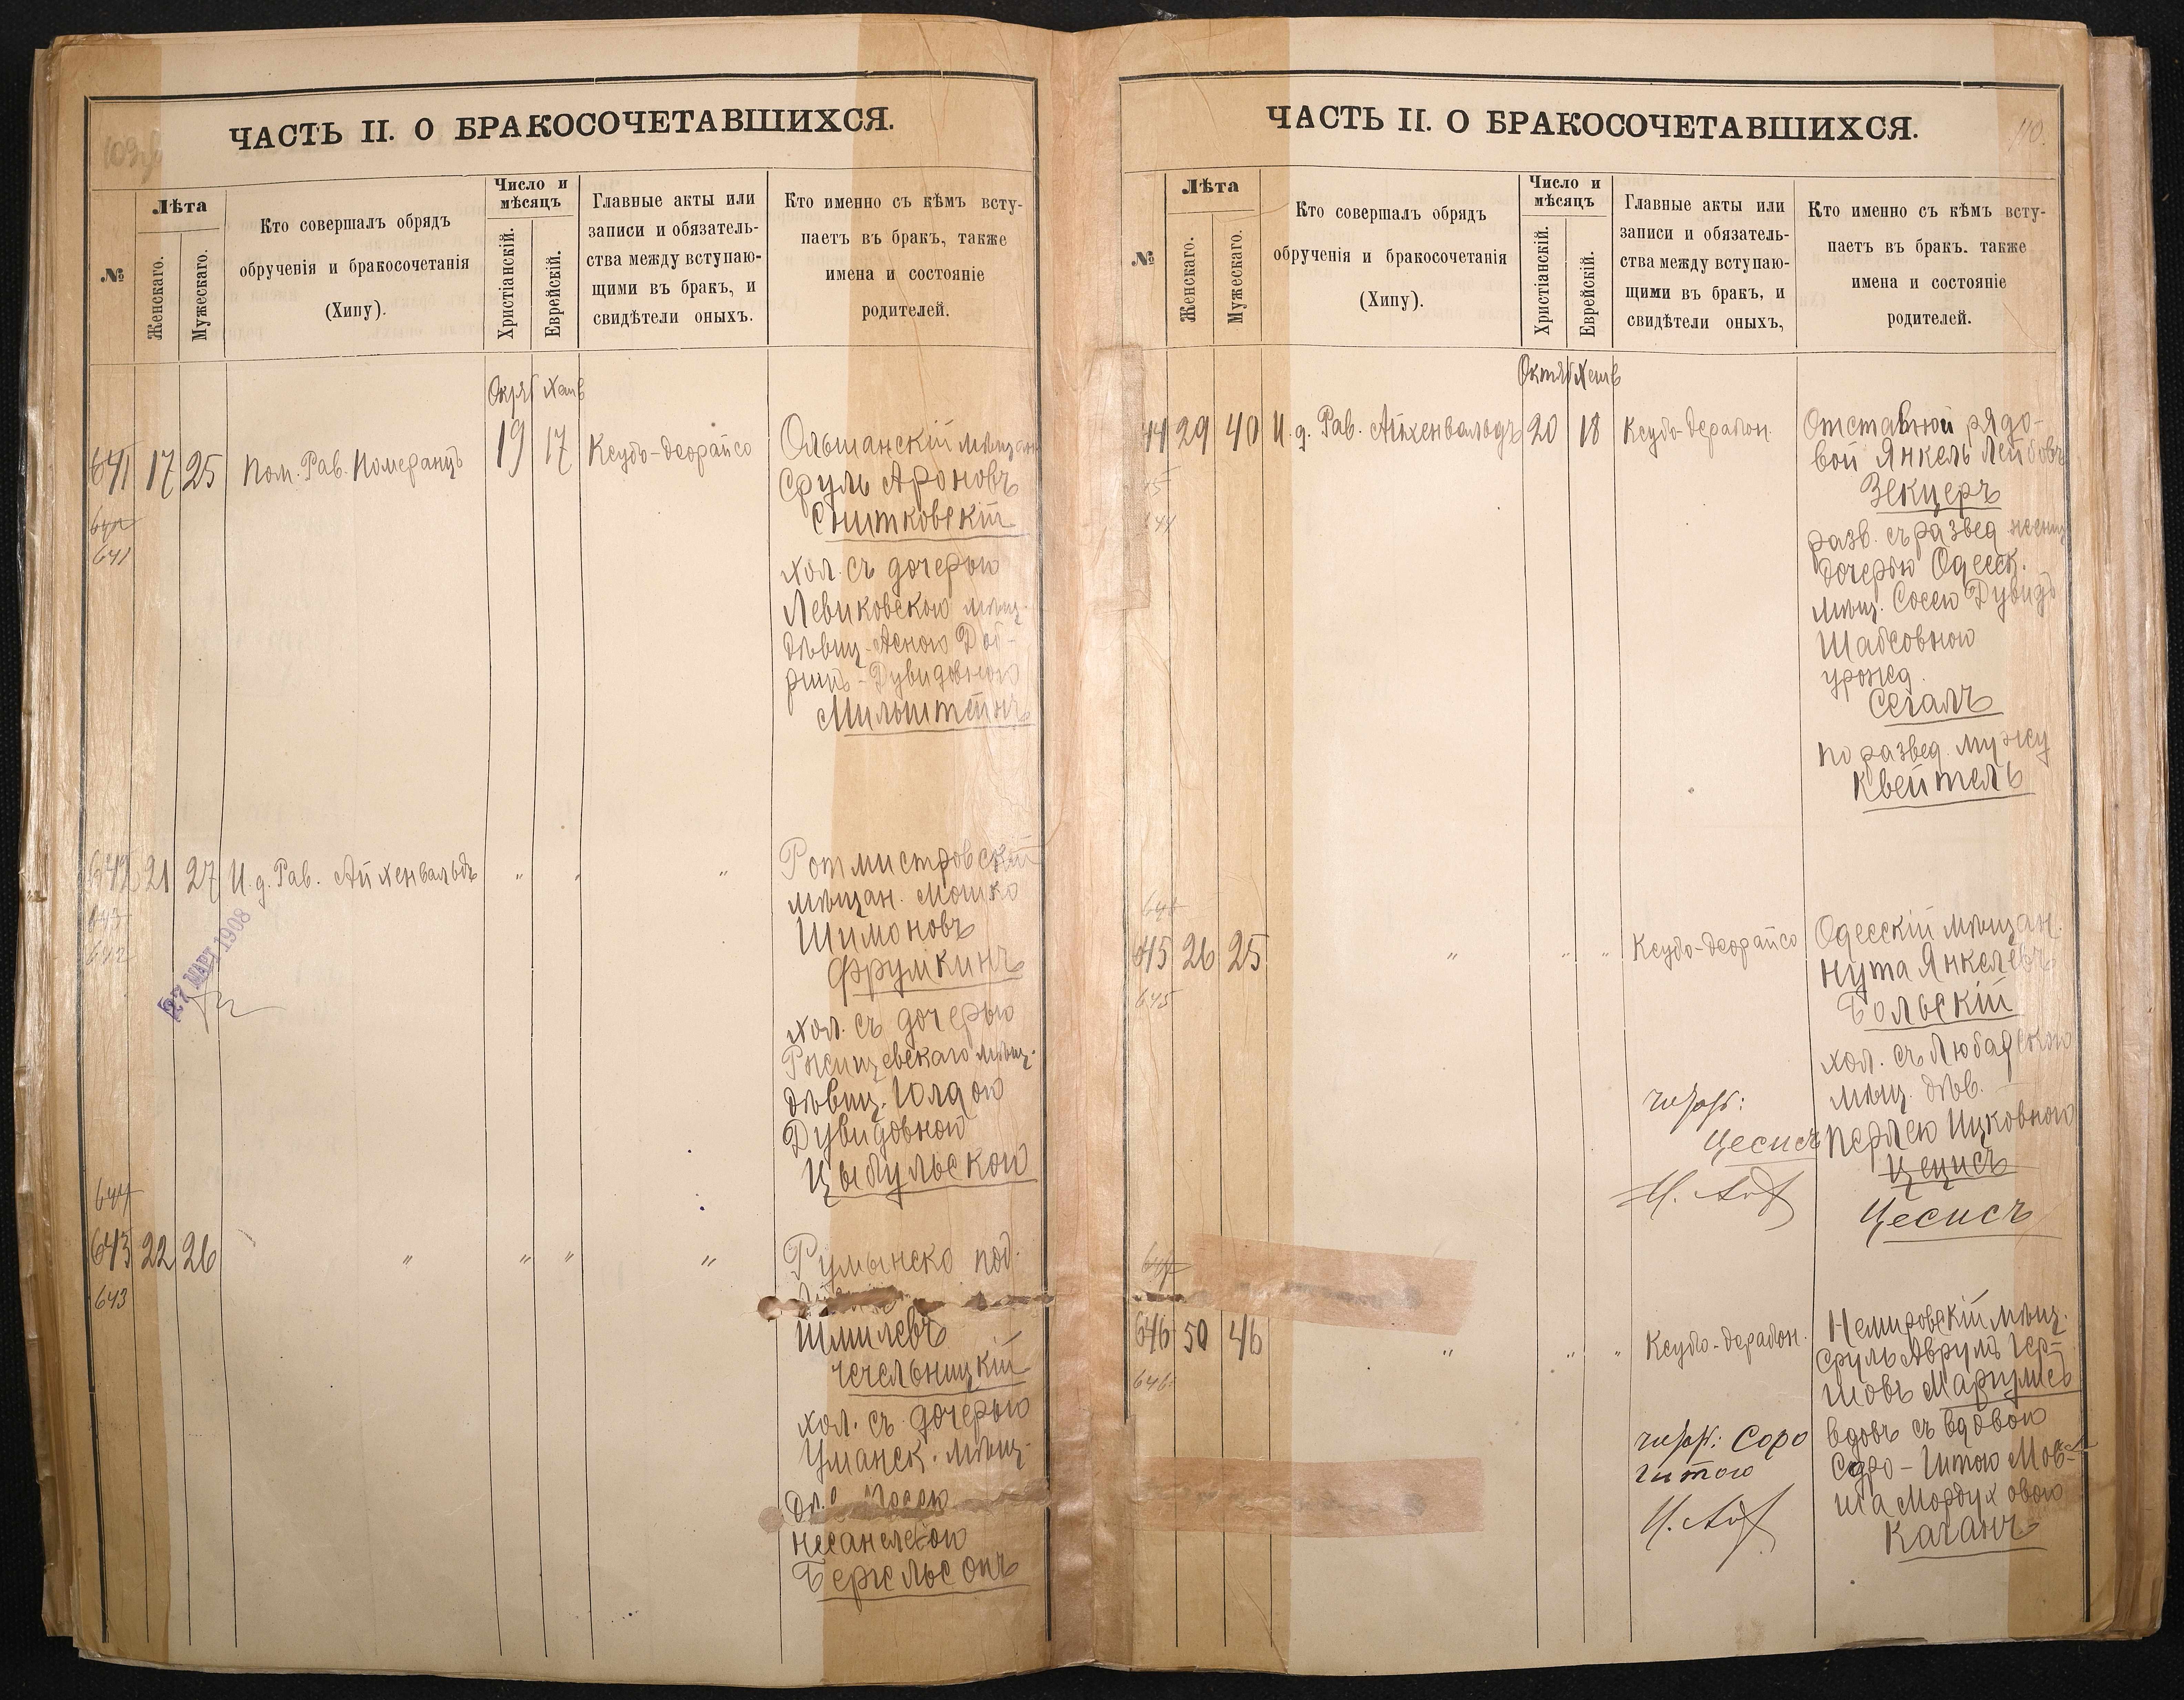 109 об
ЧАСТЬ II. О БРАКОСОЧЕТАВШИХСЯ.
№
Лѣта
Женскаго.
Мужескаго.
Кто совершалъ обрядъ
обрученія и бракосочетанія
(Хипу).
Число и
мѣсяцъ
Христіанскій.
Еврейскій.
Главные акты или
записи и обязатель-
ства между вступаю-
щими въ бракъ, и
свидѣтели оныхъ.
Кто именно съ кѣмъ всту-
паетъ въ бракъ, также
имена и состояніе
родителей.
641 17 25 Пом. Рав. Померанцъ 19 17 Ксубо-деорайсо
641
Ольшанскій мѣщан
Сруль Ароновъ
Снитковскій
хол. съ дочерью
Левиковскою мѣщ.
дѣвиц.
Дувидовною
Мильштейнъ
642 21 27 И. д. Рав. Айхенвальдъ " " "
642
27 МАРТ 1908
Ротмистровскій
мѣщан. Мошко
Шимоновъ
Фрумкинъ
хол. съ дочерью
Ржищевскаго мѣщ.
дѣвиц. Юлдою
Дувидовной
Цыбульской
644
643 22 26 " " " "
643
Румынско под.
Шмилевъ
Чечельницкій
хол. съ дочерью
Уманск. мѣщ.
Несанелевой
Бергельсонъ
110.
ЧАСТЬ II. О БРАКОСОЧЕТАВШИХСЯ.
№
Лѣта
Женскаго.
Мужескаго.
Кто совершалъ обрядъ
обрученія и бракосочетанія
(Хипу).
Число и
мѣсяцъ
Христіанскій.
Еврейскій.
Главные акты или
записи и обязатель-
ства между вступаю-
щими въ бракъ, и
свидѣтели оныхъ,
Кто именно съ кѣмъ всту-
паетъ въ бракъ. также
имена и состояніе
родителей.
Октяб Хешв
44 29 40 И. д. Рав. Айхенвальдъ 20 18 Ксубо-дерабон.
Отставной рядо-
вой Янкель Лейбовъ
Зекцеръ
разв. съ развед. женщ
дочерью Одесск.
мѣщ. Сосею Дувидъ
Шабсовною
урожд.
Сегалъ
по развед. мужу
Квейтель
645 26 25 " " " Ксубо-деорайсо
645
Одесскій мѣщан.
Нута Янкелевъ
Больскій
хол. съ Любадскою
мѣщ. дѣв.
Перлею Ицковною
Цецисъ
Цесисъ
Цесисъ
646 50 46 " " " Ксубо-дерабон.
646
Немировскій мѣщ.
Сруль Аврумъ Гер-
шовъ Маргулисъ
вдовъ съ вдовою
Соро-Гитою Мов-
ша Мордуховою
Каганъ
Соро
Гитою